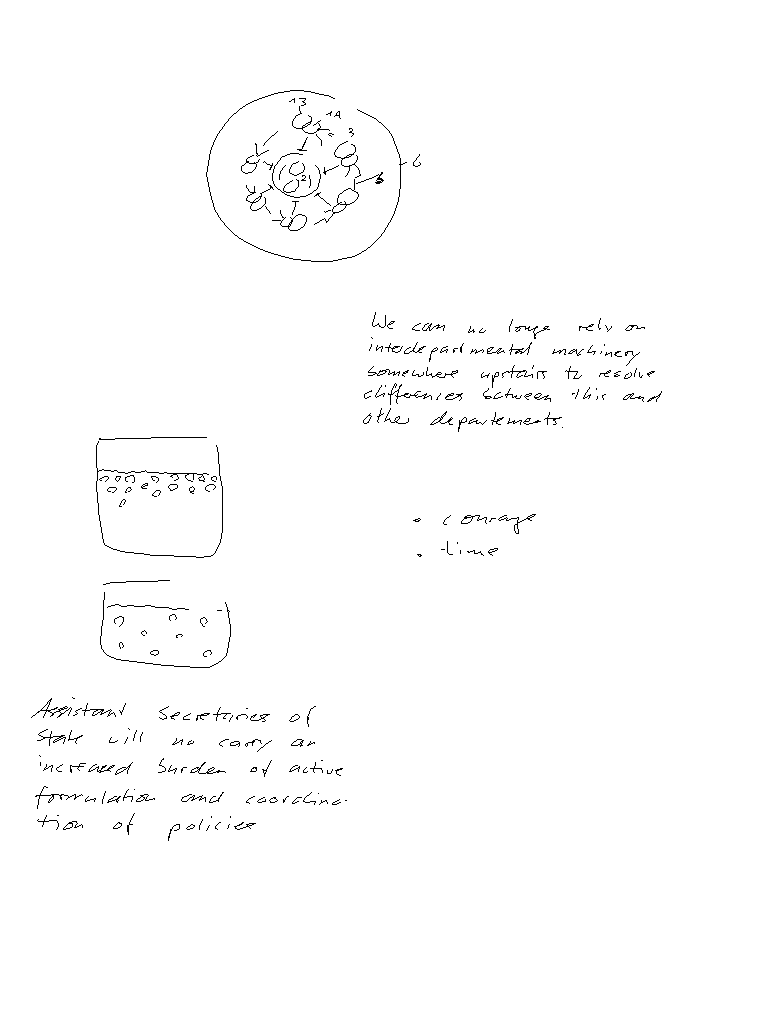 13
1A
3
2
5
6
We can no longe rely on
interdepartmental machinery
somewhere upstairs to resolve
differences between this and
other departements.
• courage
• time
Assistant Secretaries of
State will no carry an
increased burden of active
formulation and coordina-
tion of policies